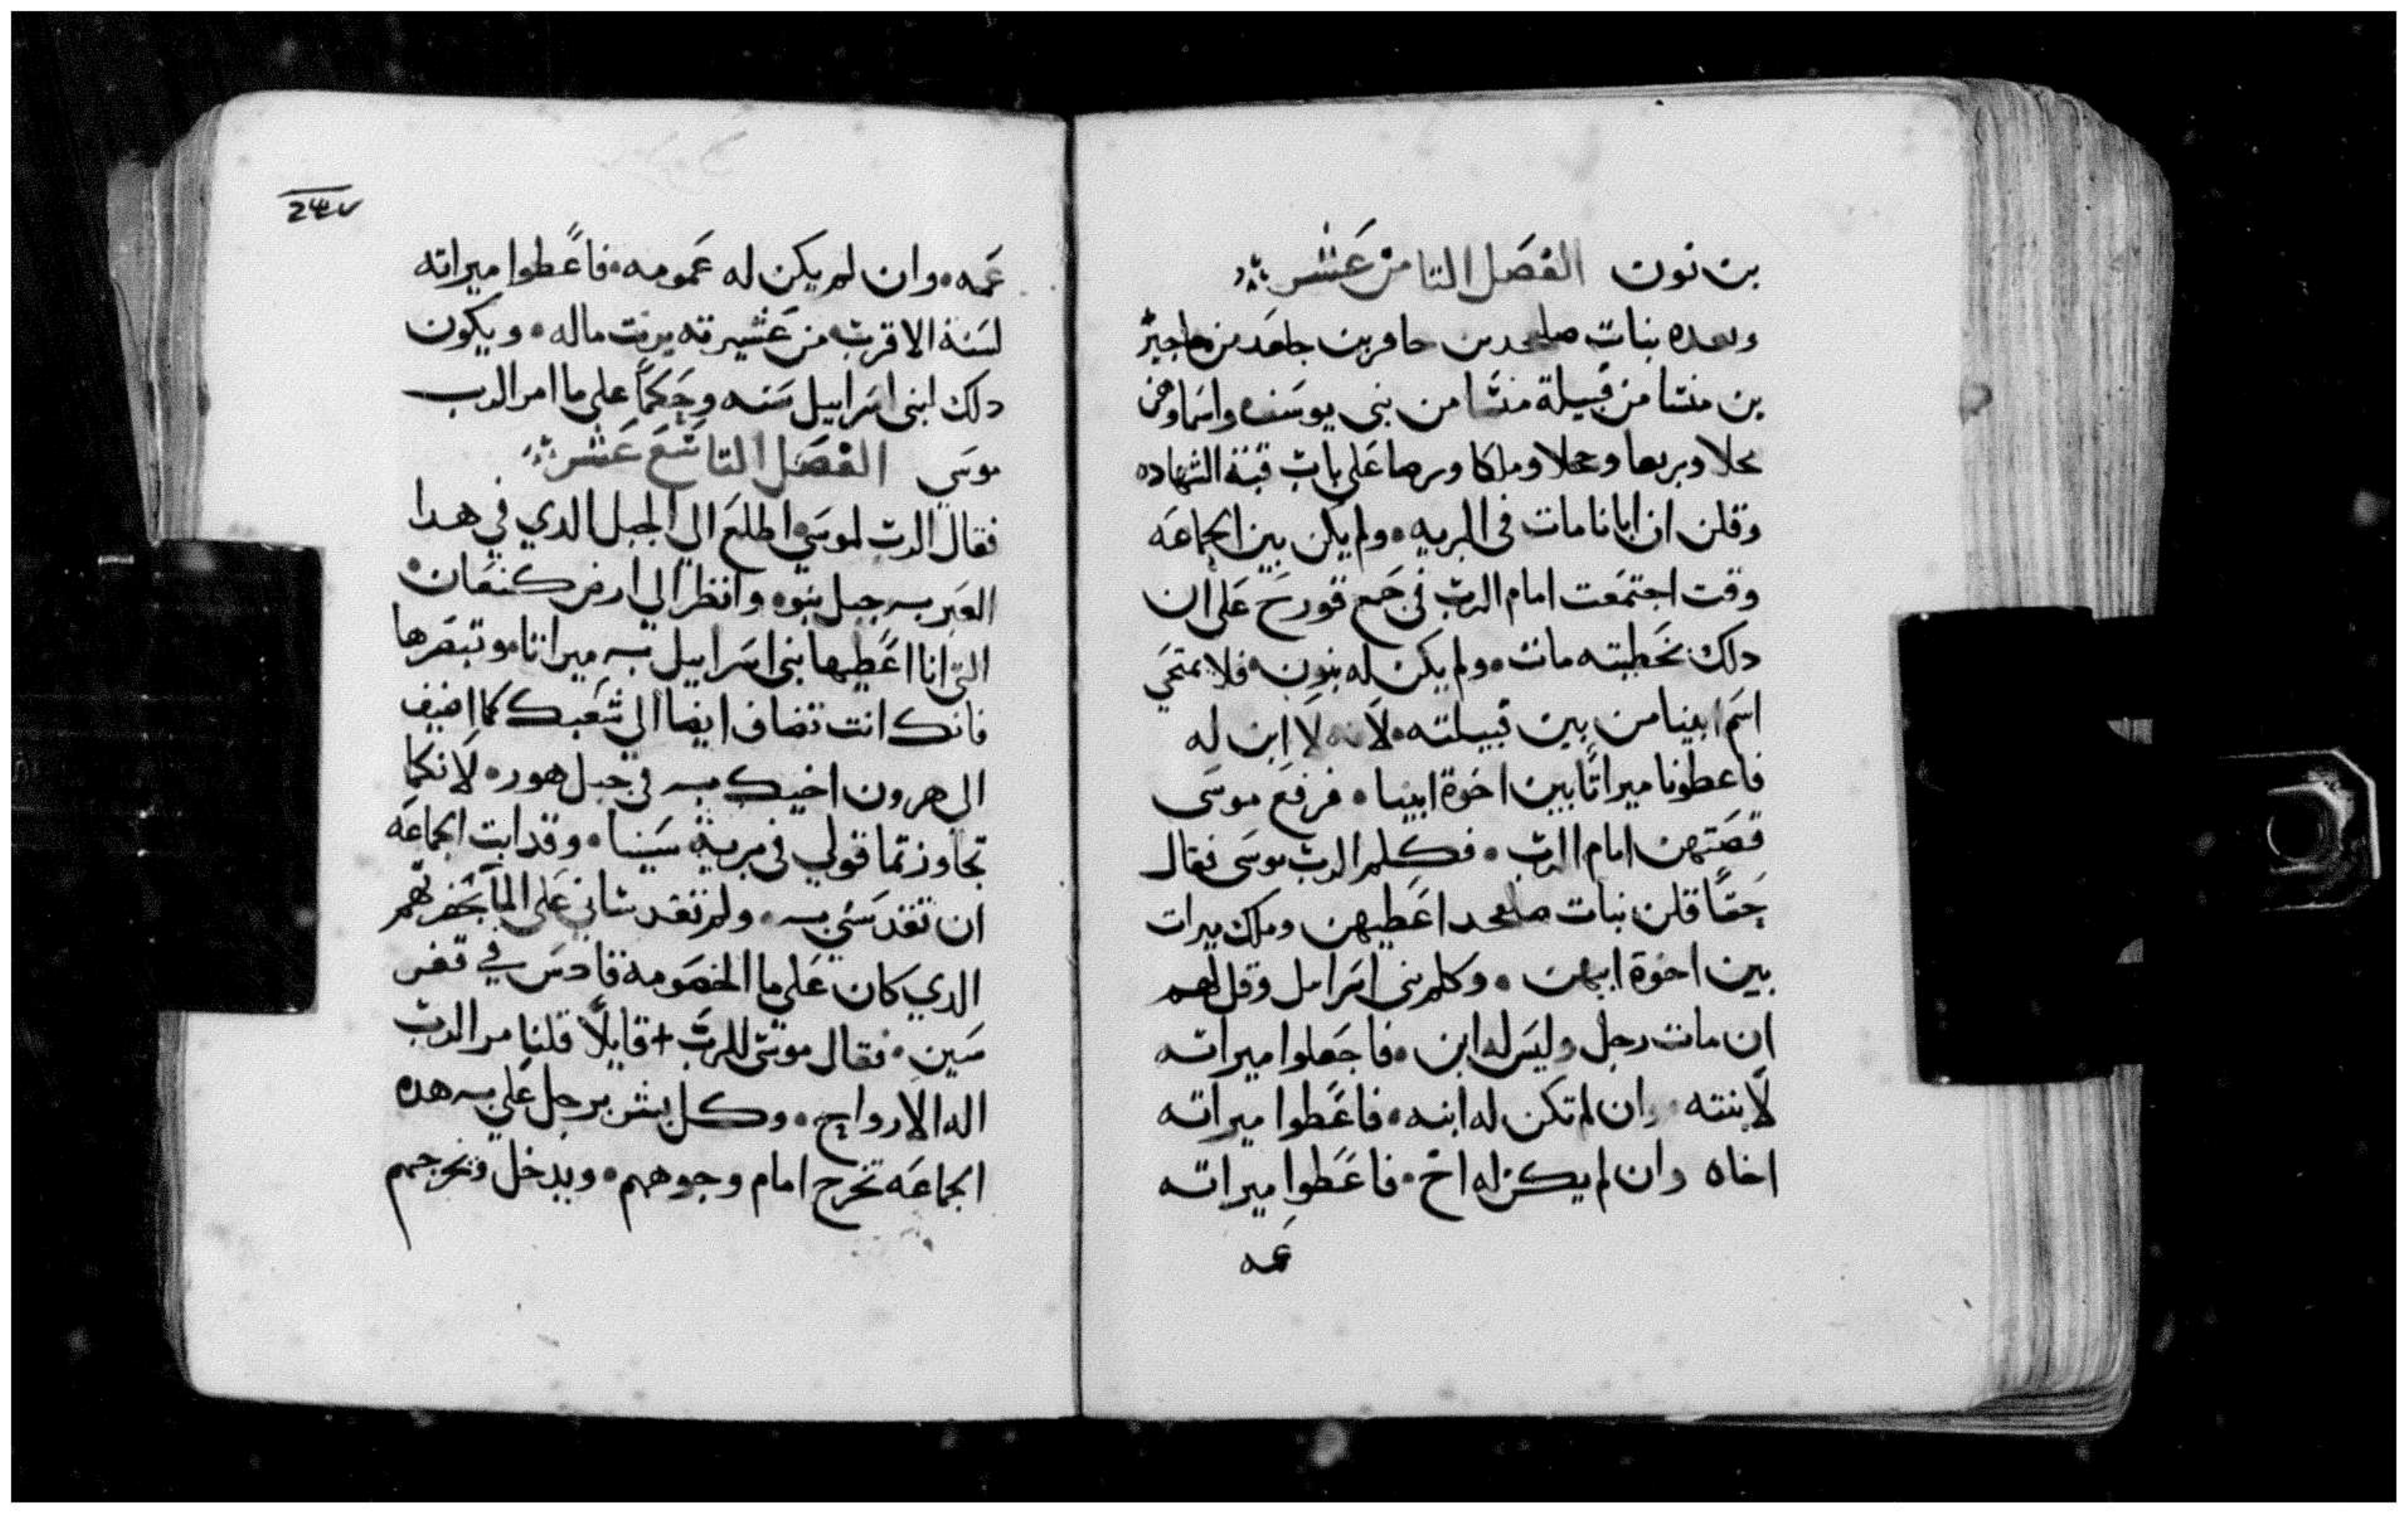 بن نون الفصل التامن عشر
وهده بنات صلحمد بن حافر بن جلعد بن ماجير
بن منشا من قبيلة منشا من بني يوسف واسماوهن
محلا وبريعا وعجلا وملكا وبرصا على باب قبة الشهاده
وقلن ان ابانا مات في البريه • ولم يكن بين الجماعه
وقت اجتمعت امام الرب في جمع قورح على ان
دلك بخطيته مات • ولم يكن له بنون • فلا يمتحي
اسم ابينا من بين قبيلته • لانه لا ابن له
فاعطونا ميراتًا بين اخوة ابينا • فرفع موسى
قصتهن امام الرب • فكلم الرب موسى فقال
حقًا قلن بنات صلحمد اعطيهن وملك ميرات
بين اخوة ابيهن • وكلم بني اسرايل وقل لهم
ان مات رجل وليس له ابن • فاجعلوا ميراته
لابنته • وان لم تكن له ابنه • فاعطوا ميراته
اخاه وان لم يكن له اخ • فاعطوا ميراته
عمه
عمه • وان لم يكن له عمومه • فاعطوا ميراته
لسنة الاقرب من عشيرته يرت ماله • ويكون
دلك لبني اسراييل سنه وحكمًا على ما امر الرب
موسي الفصل التاسع عشر
فقال الرب لموسي اطلع الي الجبل الدي في هدا
العبر جبل نبوه وانظر الي ارض كنعان •
التي انا اعطيها بني اسراييل ميراتا • وتبصرها
فانك انت تضاف ايضا الي شعبك كما اضيف
الي هرون اخيك في جبل هور • لانكما
تجاوزتما قولي في برية سينا • وقد ابت الجماعه
ان تقدسني • ولم تقدساني على الما بحضرتهم
الدي كان على ما الخصومه قادس في قفر
سين • فقال موسي للرب + قايلًا قلنا مر الرب
اله الارواح • وكل بشر برجل علي هده
الجماعه تخرج امام وجوههم • ويدخل وتخرجهم